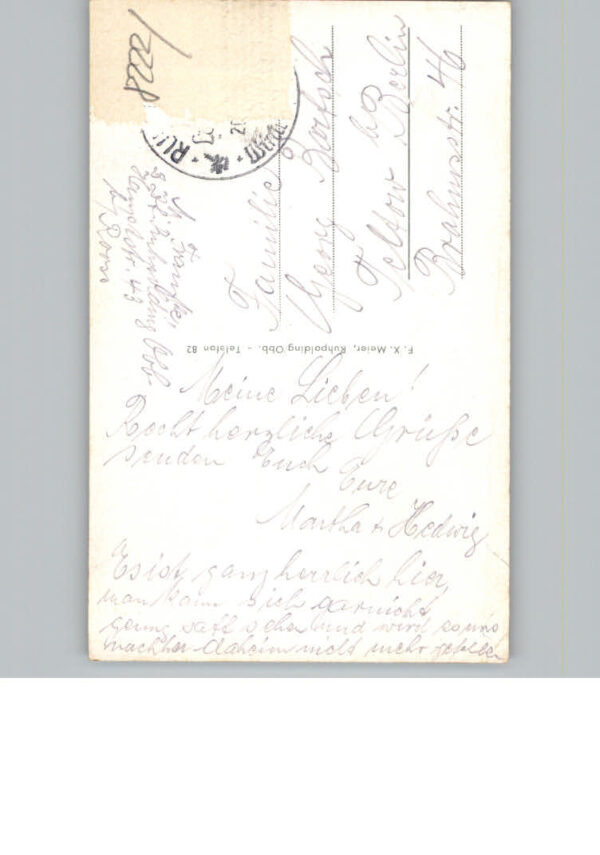 Meine Lieben!
Recht herzliche Grüße
senden Euch
Eure
Martha + Hedwig
Es ist ganz herrlich hier,
man kann sich garnicht
genug satt sehen und wird es uns
nachher daheim nicht mehr gefallen
Familie
Georg
Teltow b/
Berlin
Brahmsstr. 46
F. X. Meier, Ruhpolding Obb. - Telefon 82
z. Zt. Ruhpolding Obb.
43
RU